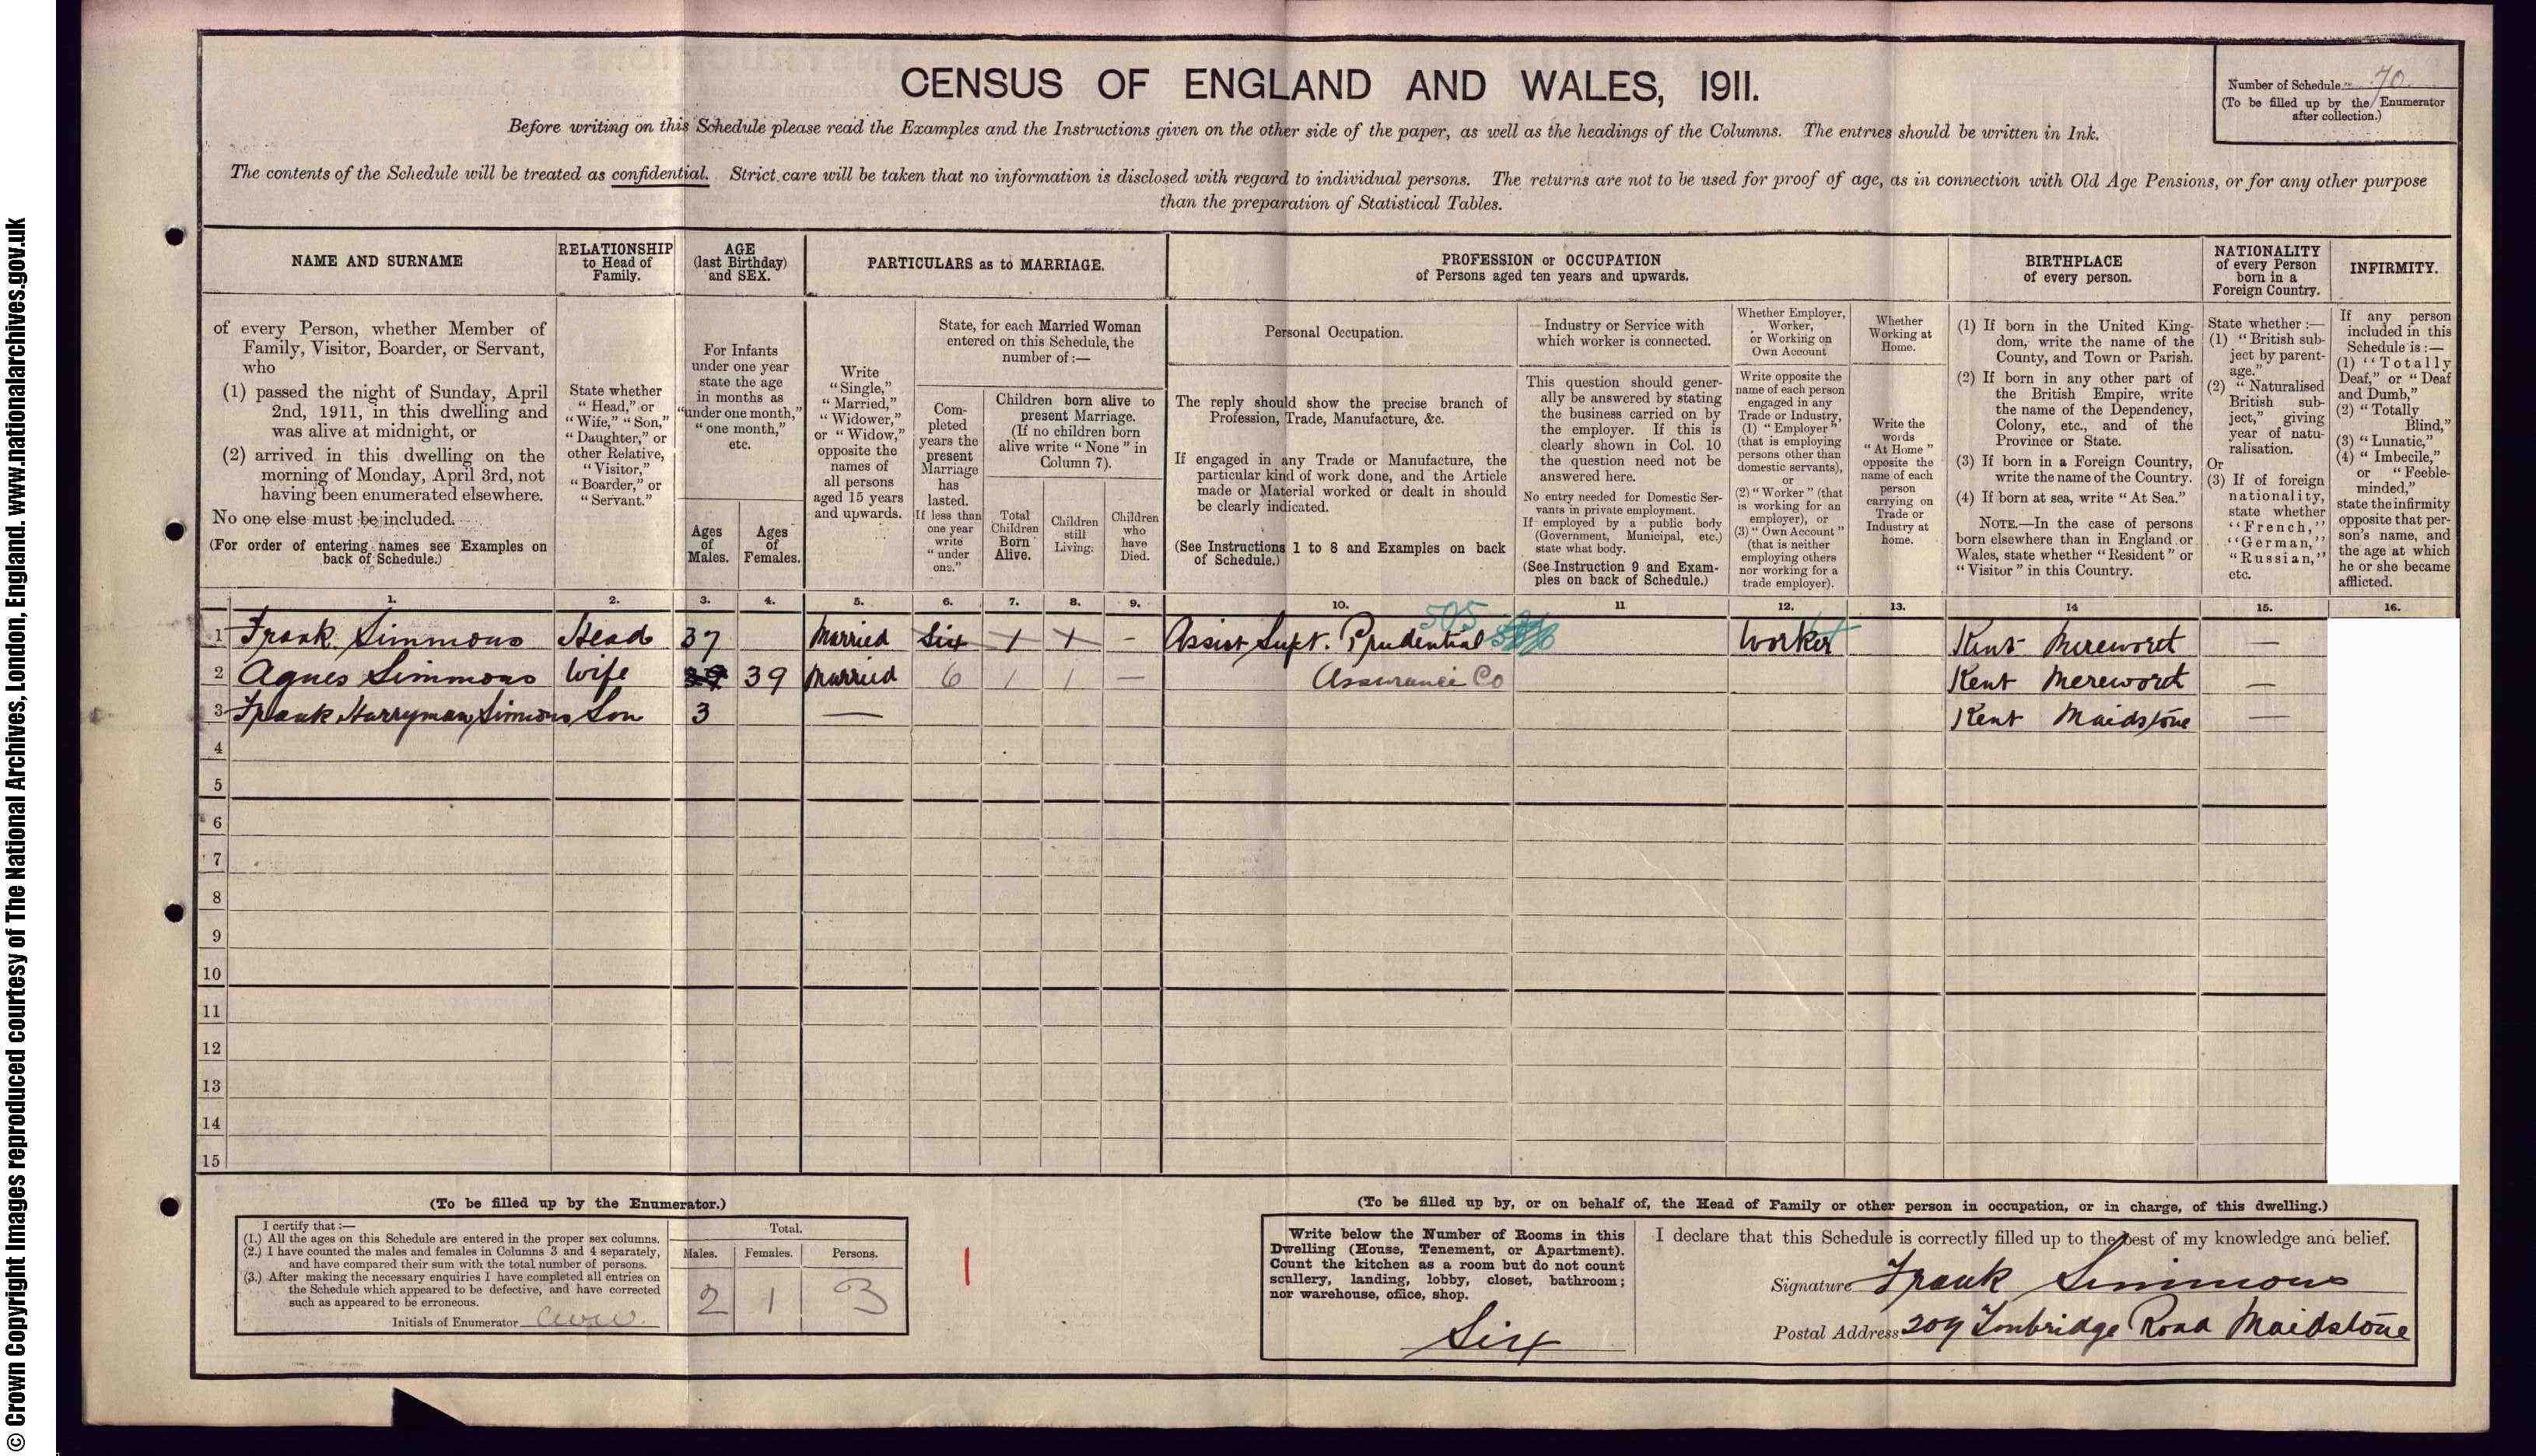 CENSUS OF ENGLAND AND WALES, 1911.
Number of Schedule 70
(To be filled up by the Enumerator
after collection.)
Before writing on this Schedule please read the Examples and the Instructions given on the other side of the paper, as well as the headings of the Columns. The entries should be written in Ink.
The contents of the Schedule will be treated as confidential. Strict care will be taken that no information is disclosed with regard to individual persons. The returns are not to be used for proof of age, as in connection with Old Age Pensions, or for any other purpose
than the preparation of Statistical Tables.
NAME AND SURNAME
of every Person, whether Member of
Family, Visitor, Boarder, or Servant,
who
(1) passed the night of Sunday, April
2nd, 1911, in this dwelling and
was alive at midnight, or
(2) arrived in this dwelling on the
morning of Monday, April 3rd, not
having been enumerated elsewhere.
No one else must be included.
(For order of entering names see Examples on
back of Schedule.)
RELATIONSHIP
to Head of
Family.
State whether
"Head," or
"Wife," "Son,"
"Daughter," or
other Relative,
"Visitor,"
"Boarder," or
"Servant."
AGE
(last Birthday)
and SEX.
For Infants
under one year
state the age
in months as
"under one month,"
"one month,"
etc.
Ages
of
Males.
Ages
of
Females.
PARTICULARS as to MARRIAGE.
Write
"Single,"
"Married,"
"Widower,"
or "Widow,"
opposite the
names of
all persons
aged 15 years
and upwards.
State, for each Married Woman
entered on this Schedule, the
number of :—
Com-
pleted
years the
present
Marriage
has
lasted.
If less than
one year
write
"under
one."
Children born alive to
present Marriage.
(If no children born
alive write "None" in
Column 7).
Total
Children
Born
Alive.
Children
still
Living.
Children
who
have
Died.
PROFESSION or OCCUPATION
of Persons aged ten years and upwards.
Personal Occupation.
The reply should show the precise branch of
Profession, Trade, Manufacture, &c.
If engaged in any Trade or Manufacture, the
particular kind of work done, and the Article
made or Material worked or dealt in should
be clearly indicated.
(See Instructions 1 to 8 and Examples on back
of Schedule.)
Industry or Service with
which worker is connected.
This question should gener-
ally be answered by stating
the business carried on by
the employer. If this is
clearly shown in Col. 10
the question need not be
answered here.
No entry needed for Domestic Ser-
vants in private employment.
If employed by a public body
(Government, Municipal, etc.)
state what body.
(See Instruction 9 and Exam-
ples on back of Schedule.)
Whether Employer,
Worker,
or Working on
Own Account
Write opposite the
name of each person
engaged in any
Trade or Industry,
(1) "Employer"
(that is employing
persons other than
domestic servants),
or
(2) "Worker" (that
is working for an
employer), or
(3) "Own Account"
(that is neither
employing others
nor working for a
trade employer).
Whether
Working at
Home.
Write the
words
"At Home"
opposite the
name of each
person
carrying on
Trade or
Industry at
home.
BIRTHPLACE
of every person.
(1) If born in the United King-
dom, write the name of the
County, and Town or Parish.
(2) If born in any other part of
the British Empire, write
the name of the Dependency,
Colony, etc., and of the
Province or State.
(3) If born in a Foreign Country,
write the name of the Country.
(4) If born at sea, write "At Sea."
NOTE.—In the case of persons
born elsewhere than in England or
Wales, state whether "Resident" or
"Visitor" in this Country.
NATIONALITY
of every Person
born in a
Foreign Country.
State whether :—
(1) "British sub-
ject by parent-
age."
(2) "Naturalised
British sub-
ject," giving
year of natu-
ralisation.
Or
(3) If of foreign
nationality,
state whether
"French,"
"German,"
"Russian,"
etc.
INFIRMITY.
If any person
included in this
Schedule is :—
(1) "Totally
Deaf," or "Deaf
and Dumb,"
(2) "Totally
Blind,"
(3) "Lunatic,"
(4) "Imbecile,"
or "Feeble-
minded,"
state the infirmity
opposite that per-
son's name, and
the age at which
he or she became
afflicted.
1. 2. 3. 4. 5. 6. 7. 8. 9. 10. 11 12. 13. 14 15. 16.
505
1 Frank Simmons Head 37 Married Six 1 1 – Assist Supt. Prudential Worker Kent Mereworth —
2 Agnes Simmons Wife 39 39 Married 6 1 1 — Assurance Co Kent Mereworth —
3 Frank Harryman Simmons Son 3 — Kent Maidstone —
4
5
6
7
8
9
10
11
12
13
14
15
(To be filled up by the Enumerator.)
I certify that :—
(1.) All the ages on this Schedule are entered in the proper sex columns.
(2.) I have counted the males and females in Columns 3 and 4 separately,
and have compared their sum with the total number of persons.
(3.) After making the necessary enquiries I have completed all entries on
the Schedule which appeared to be defective, and have corrected
such as appeared to be erroneous.
Initials of Enumerator
Total.
Males. Females. Persons.
2 1 3
(To be filled up by, or on behalf of, the Head of Family or other person in occupation, or in charge, of this dwelling.)
Write below the Number of Rooms in this
Dwelling (House, Tenement, or Apartment).
Count the kitchen as a room but do not count
scullery, landing, lobby, closet, bathroom;
nor warehouse, office, shop.
Six
I declare that this Schedule is correctly filled up to the best of my knowledge and belief.
Signature Frank Simmons
Postal Address 209 Tonbridge Road Maidstone
© Crown Copyright Images reproduced courtesy of The National Archives, London, England. www.nationalarchives.gov.uk